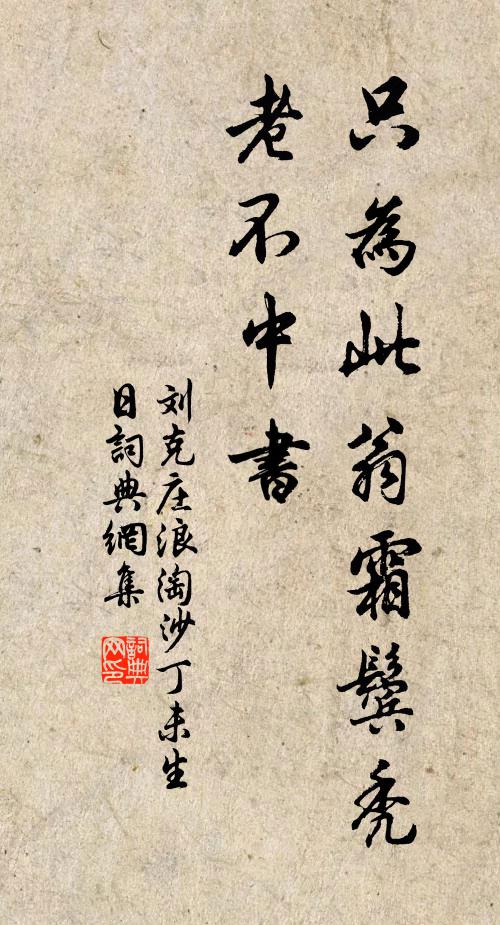 只為此翁霜鬢禿
老不中書
刘克庄浪淘沙丁未生
日詞典網集
詞典
网印